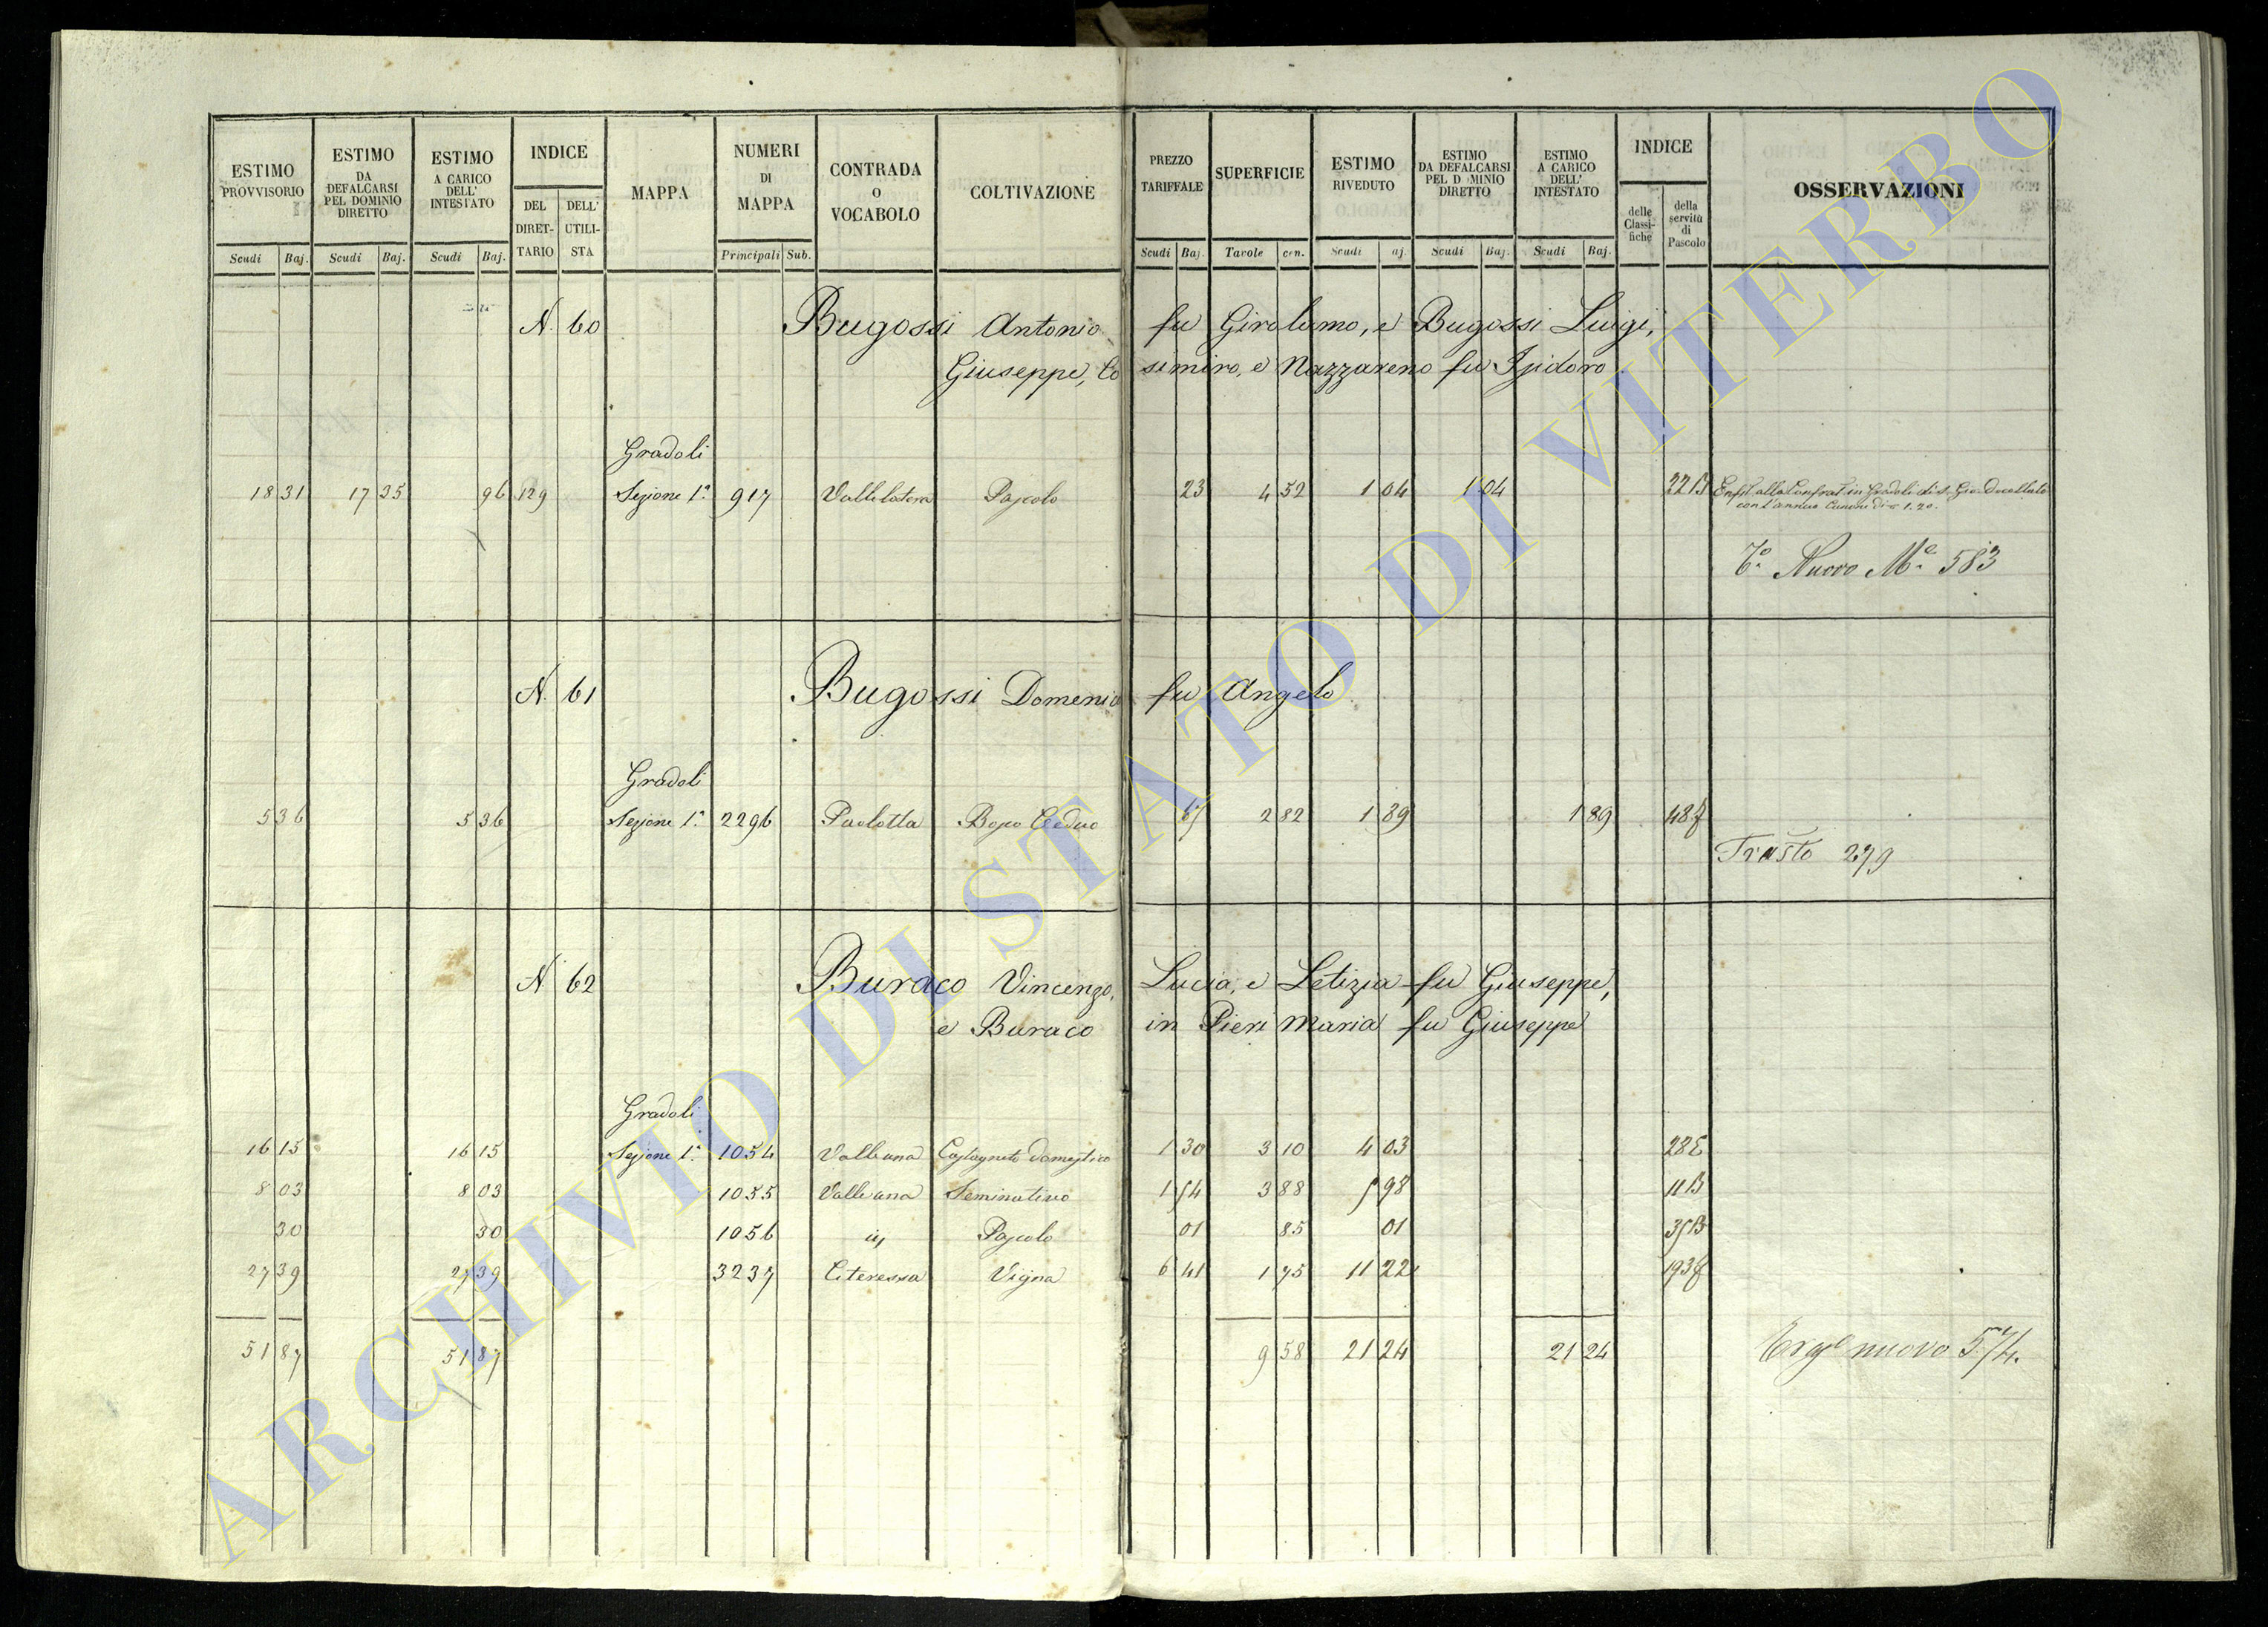 ESTIMO PROVVISORIO
ESTIMO DA DEFALCARSI PEL DOMINIO DIRETTO
ESTIMO A CARICO DELL' INTESTATO
INDICE
DEL DIRETTARIO
DELL' UTILISTA
MAPPA
NUMERI DI MAPPA
CONTRADA O VOCABOLO
COLTIVAZIONE
PREZZO TARIFFALE
SUPERFICIE
ESTIMO RIVEDUTO
ESTIMO DA DEFALCARSI PEL DOMINIO DIRETTO
ESTIMO A CARICO DELL' INTESTATO
INDICE
delle Classifiche
della servitù di Pascolo
OSSERVAZIONI
Scudi Baj. Scudi Baj. Scudi Baj. Principali Sub. Scudi Baj. Tavole cen. Scudi aj. Scudi Baj. Scudi Baj.
N. 60 Bugossi Antonio fu Girolamo, e Bugossi Luigi,
Giuseppe, Cosimiro, e Nazzareno fu Isidoro
Gradoli
18 31 17 35 96 129 Sezione 1ª 917 Vallelatera Pascolo 23 4 52 1 04 1 04 22 B Enfit. alla Confrat. in Gradoli di S. Gio. Decollato
con l'annuo Canone di 1.20.
Nuovo 583
N. 61 Bugossi Domenico fu Angelo
Gradoli
5 36 5 36 Sezione 1ª 2296 Paolotta Bosco Ceduo 67 2 82 1 89 1 89 48
279
N. 62 Buraco Vincenzo, Lucia, e Letizia fu Giuseppe,
e Buraco in Pieri Maria fu Giuseppe
Gradoli
16 15 16 15 Sezione 1ª 1054 Valleana Castagneto domestico 1 30 3 10 4 03 28 E
8 03 8 03 1055 Valleana Seminativo 1 54 3 88 5 98 11 B
30 30 1056 Pascolo 01 85 01 35 B
27 39 27 39 3237 Citeressa Vigna 6 41 1 75 11 22 193
51 87 51 87 9 58 21 24 21 24 nuovo 574.
ARCHIVIO DI STATO DI VITERBO